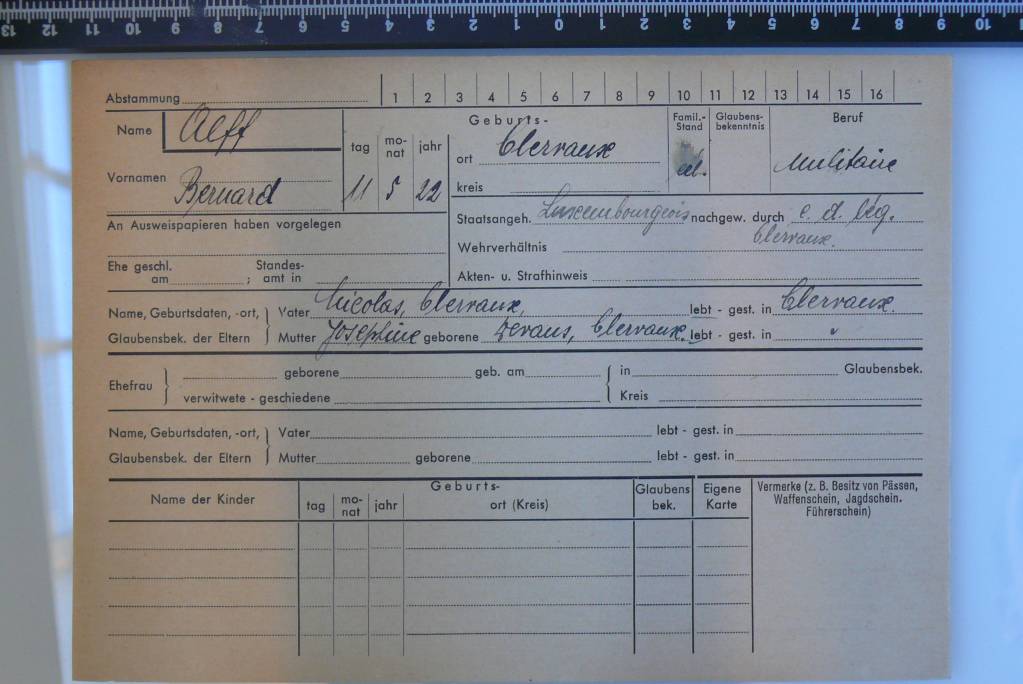 13 12 11 10 9 8 7 6 5 4 3 2 1 0 1 2 3 4 5 6 7 8 9 10
Abstammung 1 2 3 4 5 6 7 8 9 10 11 12 13 14 15 16
Name Aleff
Vornamen Bernard
tag monat jahr
11 5 22
Geburts-
ort Clervaux
kreis
Famil.-Stand
cél.
Glaubens-bekenntnis
Beruf
Militaire
An Ausweispapieren haben vorgelegen
Staatsangeh. Luxembourgeois nachgew. durch c. d. lég.
Clervaux.
Wehrverhältnis
Ehe geschl. am ; Standes-amt in
Akten- u. Strafhinweis
Name, Geburtsdaten, -ort, Vater Nicolas, Clervaux, lebt - gest. in Clervaux.
Glaubensbek. der Eltern Mutter Josephine geborene Clervaux. lebt - gest. in "
Ehefrau geborene geb. am in Glaubensbek.
verwitwete - geschiedene Kreis
Name, Geburtsdaten, -ort, Vater lebt - gest. in
Glaubensbek. der Eltern Mutter geborene lebt - gest. in
Name der Kinder
Geburts-
tag mo-nat jahr ort (Kreis)
Glaubens bek.
Eigene Karte
Vermerke (z. B. Besitz von Pässen,
Waffenschein, Jagdschein.
Führerschein)